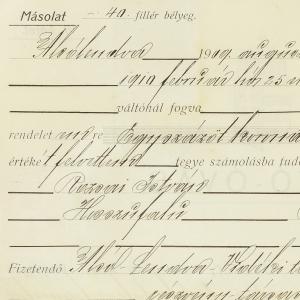 Másolat 40 fillér bélyeg.
Alsólendva 1909 augus
1910 február hó 25 n
váltónál fogva
rendelet
értékét felvettem tegye számolásba tud
Rozsai István
Hosszufalu
Fizetendő Alsó-Lendva-Vidéki t